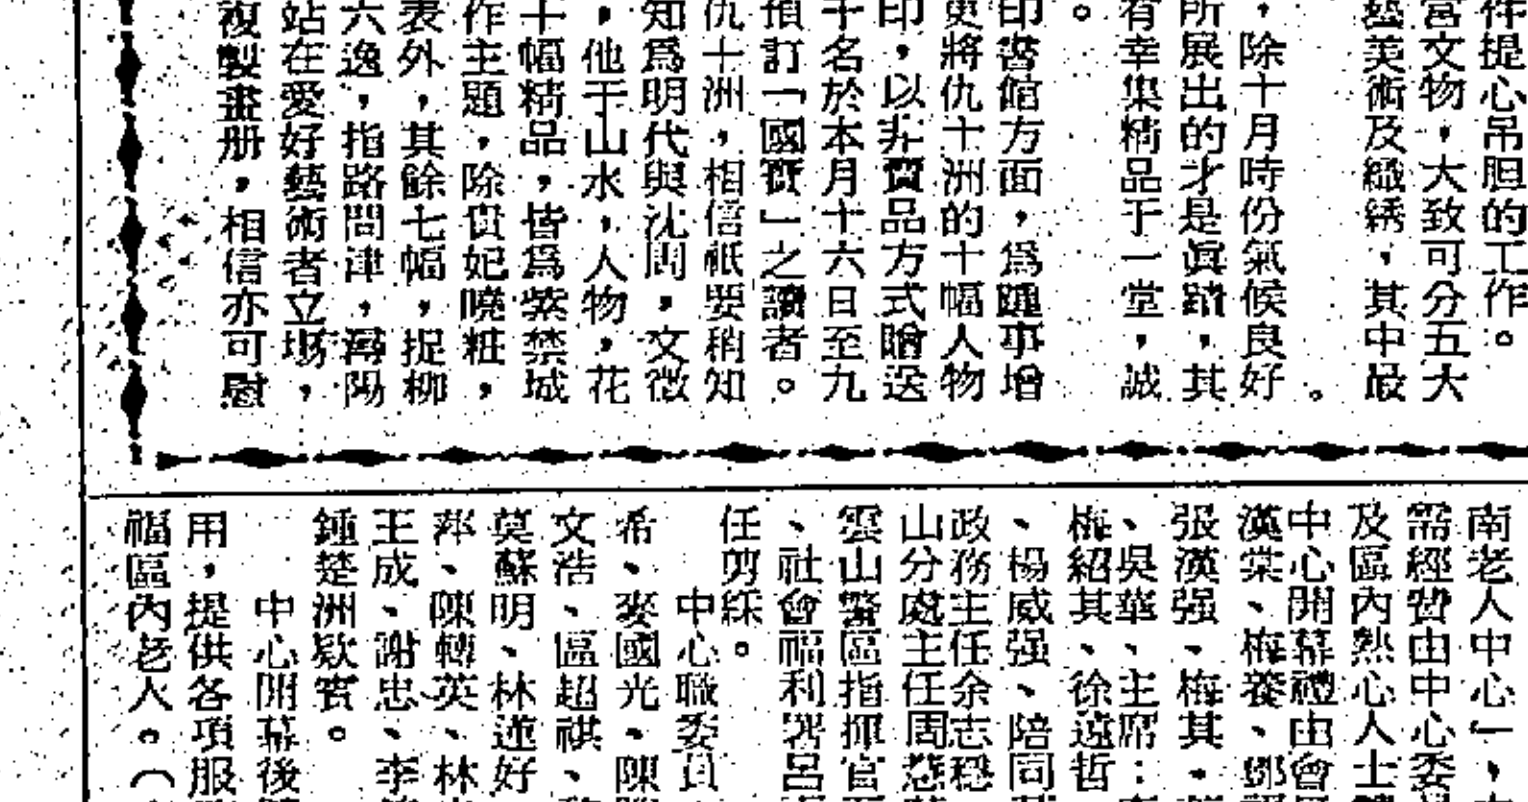 件提心吊胆的工作。
富文物，大致可分五大
藝美術及織綉，其中最
。
，除十月時份氣候良好
所展出的才是眞蹟，其
有幸集精品于一堂，誠
。
印書館方面，爲踵事增
更將仇十洲的十幅人物
印，以非賣品方式贈送
千名於本月十六日至九
預訂「國寶」之讀者。
仇十洲，相信祇要稍知
知爲明代與沈周，文徵
，他于山水，人物，花
十幅精品，皆爲紫禁城
作主題，除貴妃曉粧，
表外，其餘七幅，捉柳
六逸，指路問津，潯陽
站在愛好藝術者立塲，
複製畫册，相信亦可慰
南老人中心」，
需經費由中心委
及區內熱心人士
中心開幕禮由會
漢棠、梅養、鄧
張漢强、梅其、
、吳華、主席：
梅紹其、徐遠哲
、楊威强、陪同
政務主任余志穏
山分處主任周
雲山警區指揮官
、社會福利署呂
任剪綵。
中心職委員
希、麥國光、陳
文浩、區超祺、
莫蘇明、林蓮好
萍、陳轉英、林
王成、謝忠、李
鍾楚洲欵賓。
中心開幕後
用，提供各項服
福區內老人。（